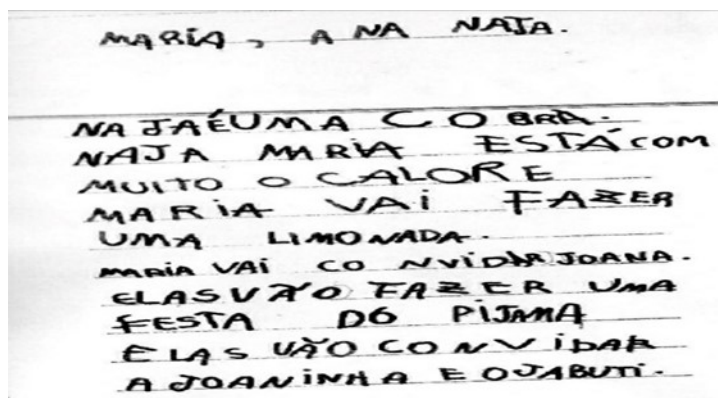 MARIA, A NA NAJA.
NA JAÉUMA C O BRA.
NAJA MARIA ESTÁ COM
MUITO O CALORE
MARIA VAI FAZER
UMA LIMONADA.
MARIA VAI CO NVIDAR JOANA.
ELAS VÃO FAZER UMA
FESTA DO PIJAMA
ELAS VÃO CONVIDAR
A JOANINHA E OJABUTI.